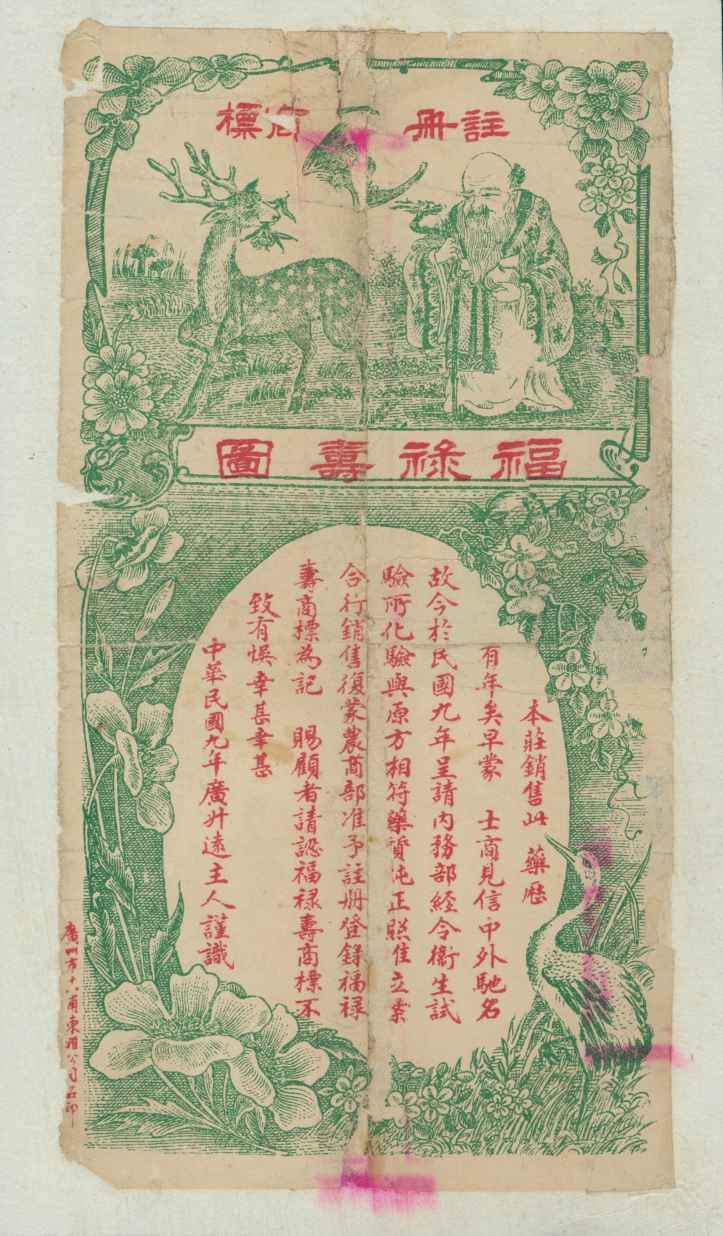 註冊商標
福祿壽圖
本莊銷售此 藥歷
有年矣早蒙 士商見信中外馳名
故今於民國九年呈請內務部經令衞生試
驗所化驗與原方相符藥資純正照准立案
合行銷售復蒙農商部准予註册登錄福祿
壽商標為記 賜顧者請認福祿壽商標不
致有悞幸甚幸甚
中華民國九年廣升遠主人謹識
廣州市十八甫東雅公司石印